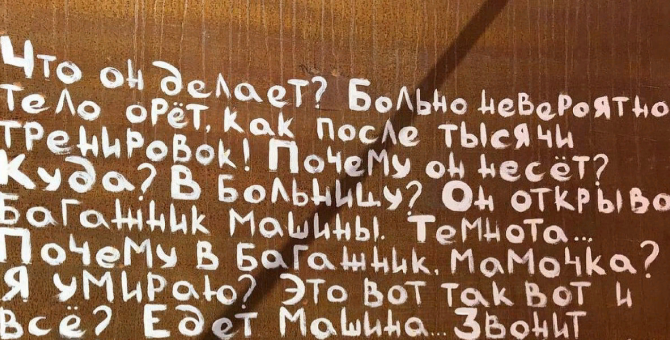 Что он делает? Больно невероятно
тело орёт, как после тысячи
тренировок! Почему он несёт?
Куда? В больницу? Он открыва
багажник машины. Темнота...
Почему в багажник, мамочка?
Я умираю? Это вот так вот и
всё? Едет машина... Звонит